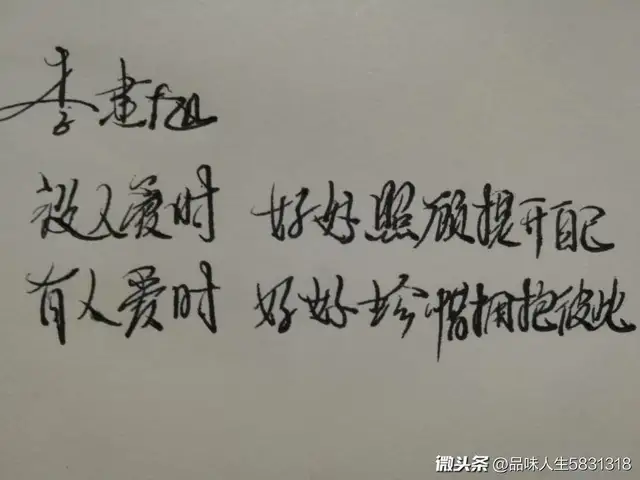 李建
没人爱时 好好照顾提升自己
有人爱时 好好珍惜拥抱彼此
微头条 @品味人生5831318